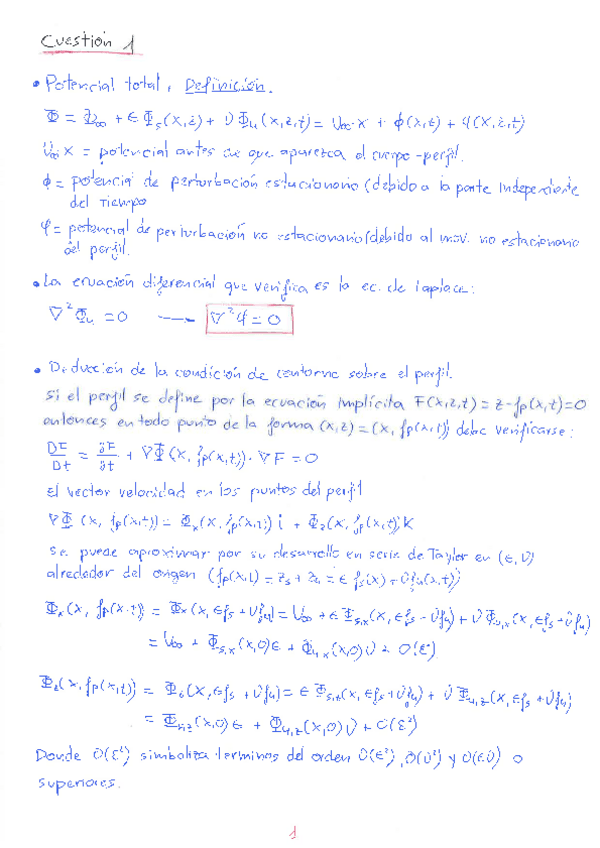 Cuestión 1
• Potencial total, Definición.
Φ = Φ∞ + ε Φs(x,z) + ν Φu(x,z,t) = U∞·x + ϕ(x,z) + φ(x,z,t)
U∞ x = potencial antes de que aparezca el cuerpo-perfil.
ϕ = potencial de perturbación estacionario (debido a la parte independiente
del tiempo
φ = potencial de perturbación no estacionario (debido al mov. no estacionario
del perfil.
• La ecuación diferencial que verifica es la ec. de laplace:
∇²Φu = 0 ---- ∇²φ = 0
• Deducción de la condición de contorno sobre el perfil.
si el perfil se define por la ecuación implícita F(x,z,t) = z - fp(x,t) = 0
entonces en todo punto de la forma (x,z) = (x, fp(x,t)) debe verificarse:
DF/Dt = ∂F/∂t + ∇Φ(x, fp(x,t))·∇F = 0
El vector velocidad en los puntos del perfil
∇Φ(x, fp(x,t)) = Φx(x, fp(x,t)) i + Φz(x, fp(x,t)) K
se puede aproximar por su desarrollo en serie de Taylor en (ε, ν)
alrededor del origen (fp(x,t) = zs + zu = ε fs(x) + ν fu(x,t))
Φx(x, fp(x,t)) = Φx(x, εfs + νfu) = U∞ + ε Φs,x(x, εfs + νfu) + ν Φu,x(x, εfs + νfu)
= U∞ + Φs,x(x,0)ε + Φu,x(x,0)ν + O(ε²)
Φz(x, fp(x,t)) = Φz(x, εfs + νfu) = ε Φs,z(x, εfs + νfu) + ν Φu,z(x, εfs + νfu)
= Φs,z(x,0)ε + Φu,z(x,0)ν + O(ε²)
Donde O(ε²) simboliza terminos del orden O(ε²), O(ν²) y O(εν) o
superiores.
1